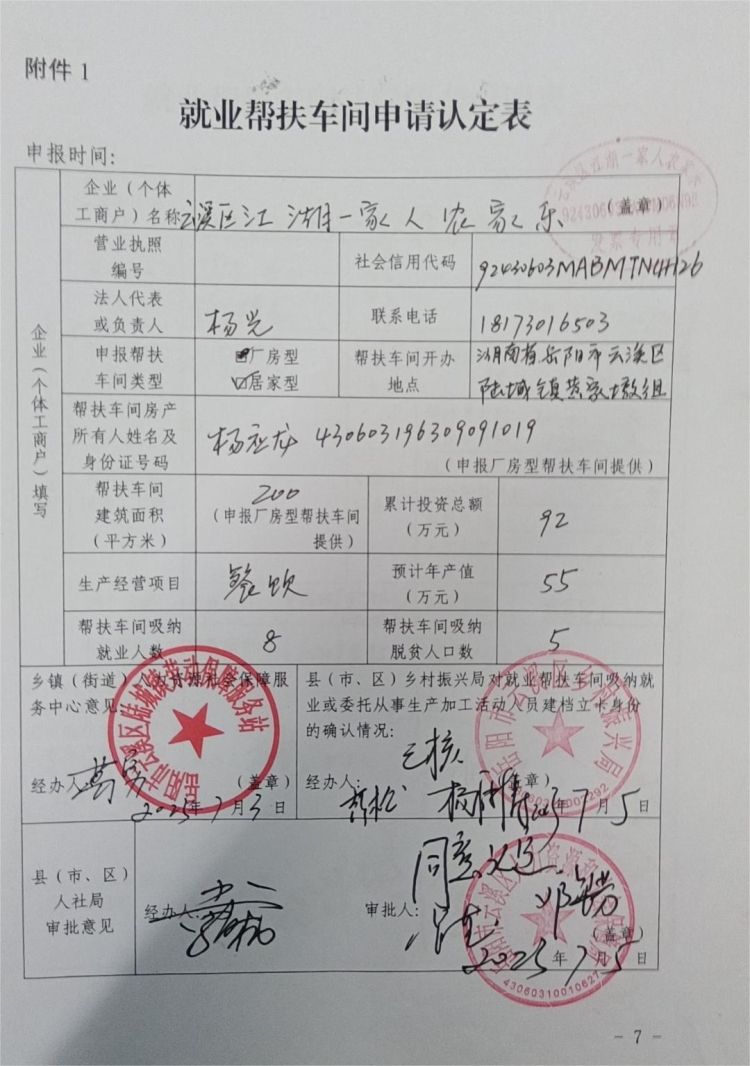 附件 1
就业帮扶车间申请认定表
申报时间:
企业（个体工商户）填写
企业（个体
工商户）名称
云溪区江湖一家人农家乐
（盖章）
发票专用章
营业执照
编号
社会信用代码
92430603MABMTN4H26
法人代表
或负责人
杨光
联系电话
18173016503
申报帮扶
车间类型
厂房型
居家型
帮扶车间开办
地点
湖南省岳阳市云溪区
陆城镇
帮扶车间房产
所有人姓名及
身份证号码
杨应龙 430603196309091019
（申报厂房型帮扶车间提供）
帮扶车间
建筑面积
（平方米）
200
（申报厂房型帮扶车间
提供）
累计投资总额
（万元）
92
生产经营项目
餐饮
预计年产值
（万元）
55
帮扶车间吸纳
就业人数
8
帮扶车间吸纳
脱贫人口数
5
乡镇（街道）人力资源社会保障服
务中心意见:
岳阳市云溪区陆城镇劳动保障服务站
经办人:
（盖章）
2025年7月3日
县（市、区）乡村振兴局对就业帮扶车间吸纳就
业或委托从事生产加工活动人员建档立卡身份
的确认情况:
已核
岳阳市云溪区乡村振兴局
经办人:
（盖章）
7月5日
县（市、区）
人社局
审批意见
经办人:
同意
审批人:
（盖章）
2025年7月5日
43060310010627
- 7 -